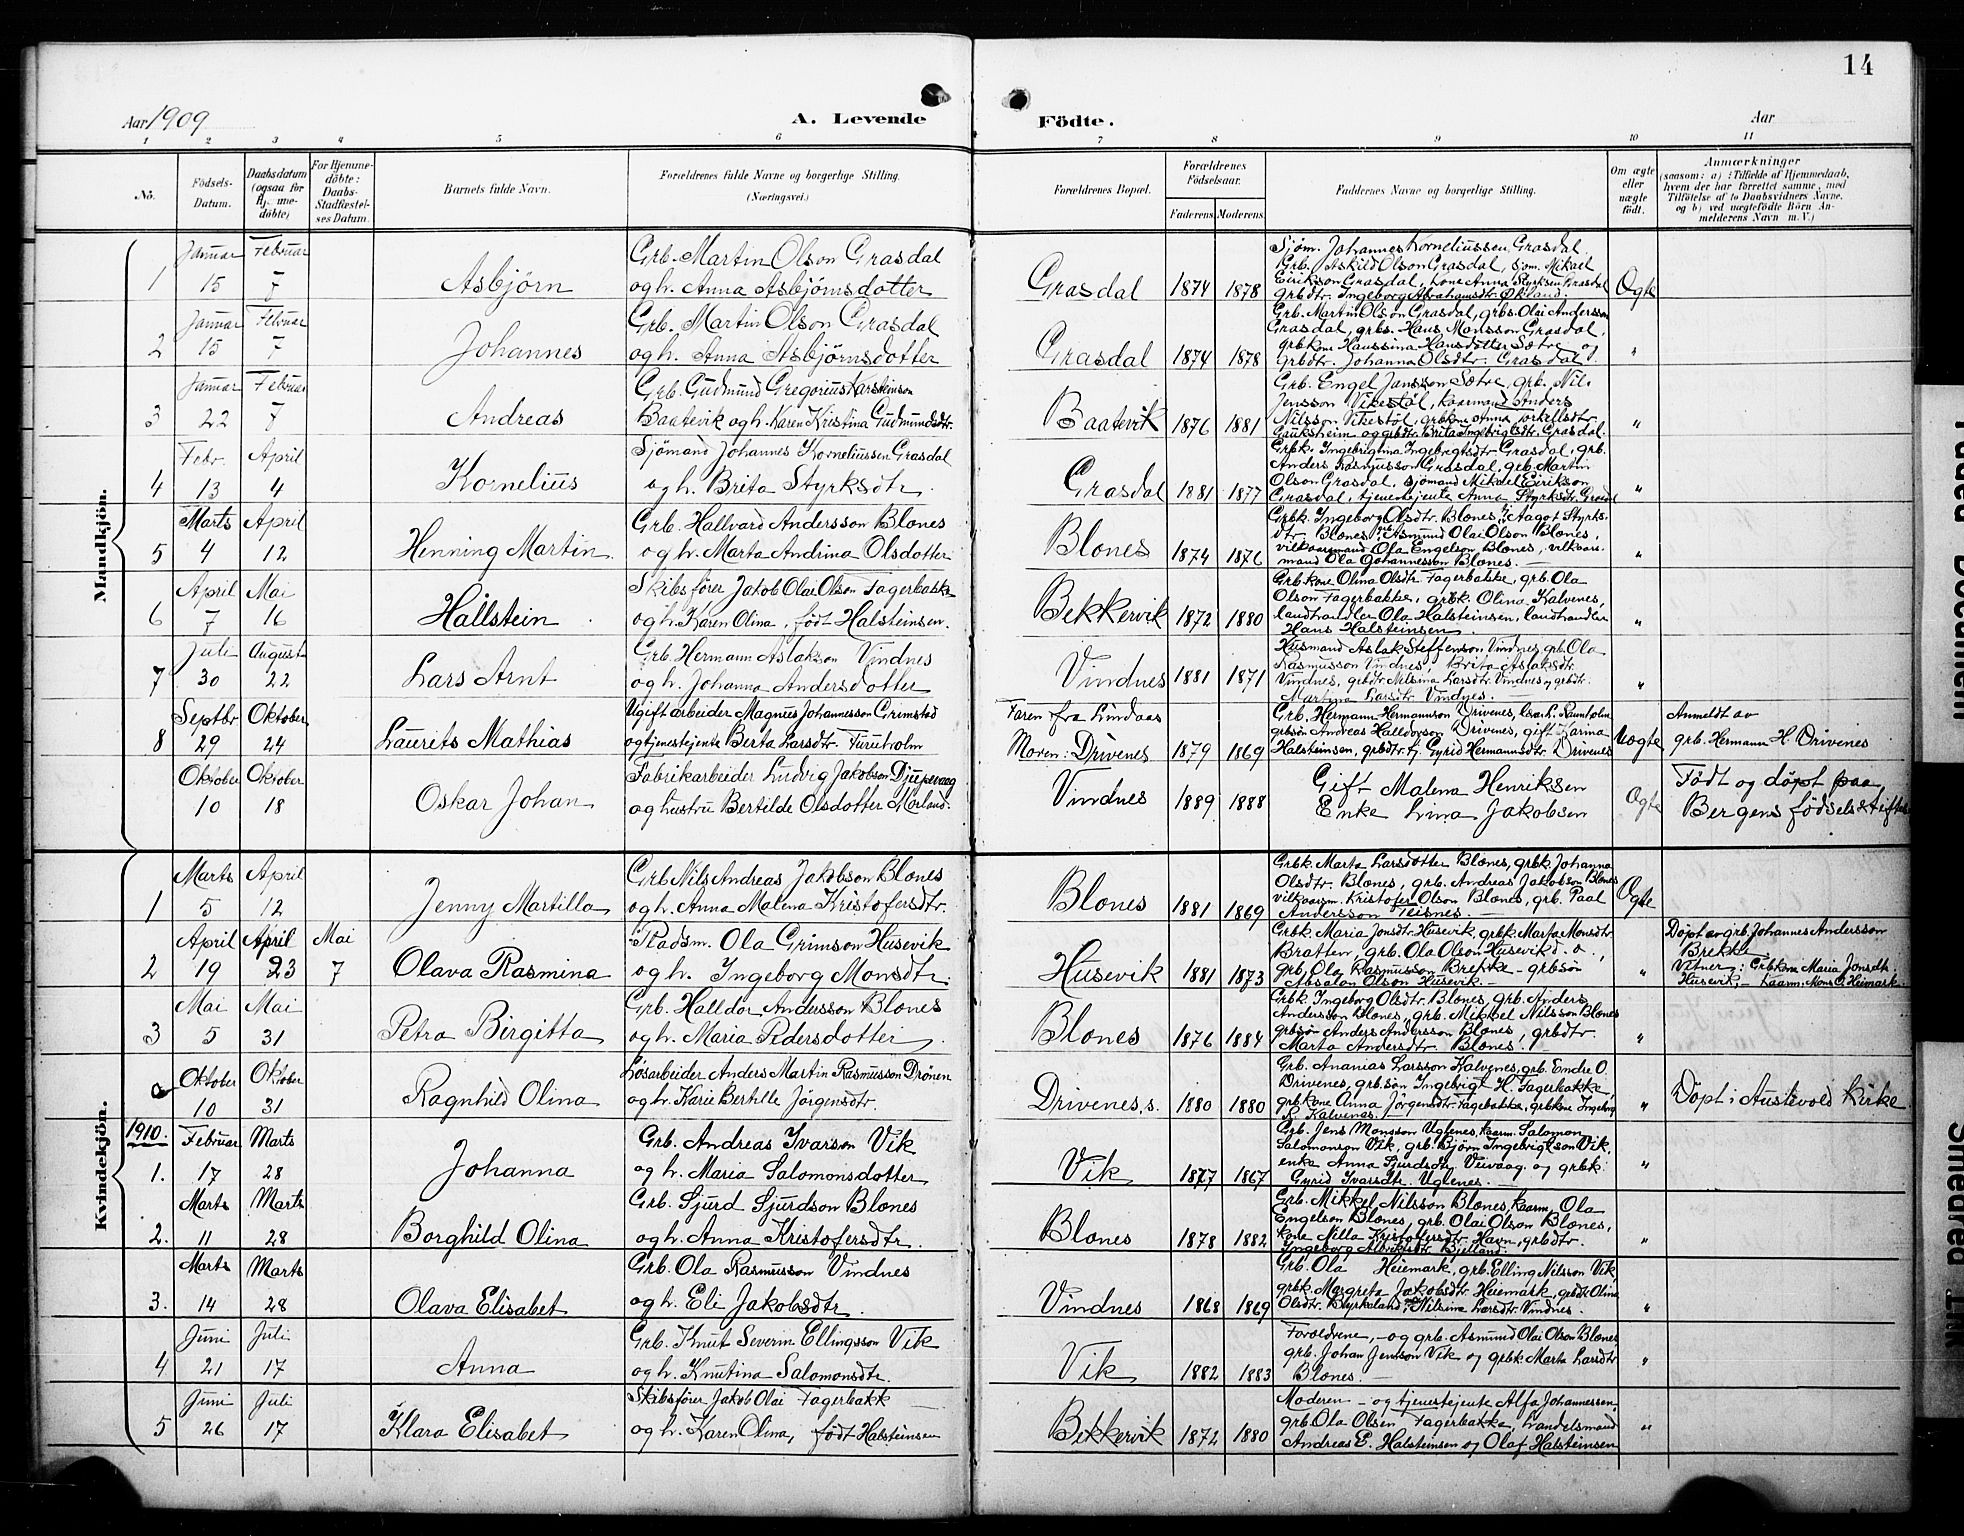 14
Aar 1909
A. Levende
Födte.
Aar
1 2 3 4 5 6 7 8 9 10 11
No.
Födsels-Datum.
Daabsdatum (ogsaa for Hj.mmedöbte)
For Hjemmedöbte: Daabs-Stadfæstelses Datum.
Barnets fulde Navn.
Forældrenes fulde Navne og borgerlige Stilling.
(Næringsvei.)
Forældrenes Bopæl.
Forældrenes Födselsaar.
Faderens. Moderens.
Faddernes Navne og borgerlige Stilling.
Om ægte eller uægte födt.
Anmærkninger
(saasom: a) : Tilfælde af Hjemmedaab, hvem der har forrettet samme, med Tilföielse af to Daabsvidners Navne, og b) ved uægtefödte Börn Anmelderens Navn m. V.)
Mandkjön.
1 Januar 15 Februar 7 Asbjörn
Grb. Martin Olson Grasdal
og h. Anna Asbjörnsdotter
Grasdal 1874 1878
Sjöm. Johannes Korneliussen Grasdal
Grb. Askild Olson Grasdal, sjöm. Mikael
Eirikson Grasdal, kone Anna Styrksen Grasdal
grbdtr. Ingeborg Abrahamsdtr. Økland.
Ogte
2 Januar 15 Februar 7 Johannes
Grb. Martin Olson Grasdal
og h. Anna Asbjörnsdotter
Grasdal 1874 1878
Grb. Martin Olson Grasdal, grbs. Olai Andersson
Grasdal, grbs. Hans Monsson Grasdal,
grbkone Hanssina Hansdotter Sætre og
grbdtr. Johanna Olsdtr. Grasdal.
"
3 Januar 22 Februar 7 Andreas
Grb. Gudmund Gregorius Karstenson
Baatevik og h. Karen Kristina Gudmundsdtr.
Baatevik 1876 1881
Grb. Engel Jansson Sætre, grb. Nils
Jensson Vikestöl, kaarmand Anders
Nilsson Vikestöl, grbkone Anna Torkellsdtr.
Gauksheim og grbdtr. Brita Ingebrigtsdtr. Grasdal.
"
4 Febr. 13 April 4 Kornelius
Sjömand Johannes Korneliussen Grasdal
og h. Brita Styrksdtr.
Grasdal 1881 1877
Grbk. Ingebrigtina Ingebrigtsdtr Grasdal, grb.
Anders Rasmusson Grasdal, grb. Martin
Olson Grasdal, sjömand Mikael Eirikson
Grasdal, tjenestejente Anna Styrksdtr. Grasdal
"
5 Marts 4 April 12 Henning Martin
Grb. Hallvard Andersson Blones
og h. Marta Andrina Olsdotter
Blones 1874 1876
Grbk. Ingeborg Olsdtr. Blones, Aagot Styrks-
dtr. Blones, grb. Asmund Olai Olson Blones,
vilkaarmand Ola Engelson Blones, vilkaar-
mand Ola Johannesson Blones.
"
6 April 7 Mai 16 Hallstein
Skibsförer Jakob Olai Olson Fagerbakke
og h. Karen Olina, födt Halsteinsen.
Bekkervik 1872 1880
Grbkone Olina Olsdtr Fagerbakke, grb. Ola
Olson Fagerbakke, grbk. Olina Kalvenes,
landhandler Ola Halsteinsen, landhandler
Hans Halsteinsen.
"
7 Juli 30 August 22 Lars Arnt
Grb. Hermann Aslakson Vindnes
og h. Johanna Andersdotter
Vindnes 1881 1871
Husmand Aslak Steffenson Vindnes, grb. Ola
Rasmusson Vindnes, Brita Aslaksdtr.
Vindnes, grbdtr. Nilsina Larsdtr. Vindnes og grbdtr.
Martina Larsdtr. Vindnes.
"
8 Septbr 29 Oktober 24 Laurits Mathias
Ugift arbeider Magnus Johannesson Grimstad
og tjenestejente Berta Larsdtr. Furuholm
Faren fra Lindaas
Moren: Drivenes 1879 1869
Grb. Hermann Hermannson Drivenes,
grbsön Andreas Halldorson Drivenes, gift Hanna
Halsteinsen, grbdtr. fj. Gyrid Hermannsdtr Drivenes
Uægte
Anmeldt av
grb. Hermann H. Drivenes
Oktober 10 Oktober 18 Oskar Johan
Fabrikarbeider Ludvig Jakobson Djupevaag
og hustru Bertilde Olsdotter Morland.
Vindnes 1889 1888
Gift Malena Henriksen
Enke Lina Jakobsen
Ogte
Födt og döpt paa
Bergens födselsstiftel
Kvindekjön.
1 Marts 5 April 12 Jenny Martilla
Grb Nils Andreas Jakobson Blones
og h. Anna Malena Kristofersdtr.
Blones 1881 1869
Grbk. Marta Larsdotter Blones, grbk. Johanna
Olsdtr. Blones, grb. Andreas Jakobson Blones
vilkaarsm. Kristofer Olson Blones, grb. Paal
Andersson Teisnes.
Ogte
2 April 19 April 23 Mai 7 Olava Rasmina
Pladsm. Ola Grimson Husevik
og h. Ingeborg Monsdtr.
Husevik 1881 1873
Grbk. Maria Jonsdtr. Husevik, grbk. Marta Monsdtr.
Brattenr, grb. Ola Olson Husevik d. o.,
grb. Ola Rasmusson Brekke - grbsön
Absalon Olson Husevik.
"
Döpt av grb. Johannes Andersson
Brekke
Vitner: Grbkone Maria Jonsdtr.
Husevik, - Kaarm. Mons O. Heimark.
3 Mai 5 Mai 31 Petra Birgitta
Grb. Halldor Andersson Blones
og h. Maria Pedersdotter
Blones 1876 1884
Grbk. Ingeborg Olsdtr. Blones, grb. Anders
Andersson Blones, grb. Mikkel Nilsson Blones
grbsön Anders Andersson Blones, grbdtr.
Marta Andersdtr. Blones.
"
Oktober 10 Oktober 31 Ragnhild Olina
Lösarbeider Anders Martin Rasmusson Drönen
og h. Karie Bertille Jörgensdtr.
Drivenes, s. 1880 1880
Grb. Ananias Larsson Kalvenes, grb. Endre O.
Drivenes, grb. sön Ingebrigt H. Fagerbakke,
grbkone Anna Jörgensdtr. Fagerbakke, grbkone Ingeborg
R. Kalvenes.
"
Döpt i Austevold kirke
1910.
1. Februar 17 Marts 28 Johanna
Grb. Andreas Ivarson Vik
og h. Maria Salomonsdotter
Vik 1877 1867
Grb. Jens Monsson Uglenes, kaarm. Salomon
Salomonson Vik, grb. Björn Ingebrigtson Vik,
enke Anna Sjurdsdtr. Veivaag og grbk.
Gyrid Ivarsdtr. Uglenes.
"
2. Marts 11 Marts 28 Borghild Olina
Grb. Sjurd Sjurdson Blones
og h. Anna Kristofersdtr.
Blones 1878 1882
Grb. Mikkel Nilsson Blones, kaarm. Ola
Engelson Blones, grb. Olai Olson Blones,
kone Nilla Kristofersdtr. Havn, grbdtr.
Ingeborg Albrikdtr. Bjelland.
"
3. Marts 14 Marts 28 Olava Elisabet
Grb. Ola Rasmusson Vindnes
og h. Eli Jakobsdtr.
Vindnes 1868 1869
Grb. Ola Heiemark, grb. Elling Nilsson Vik,
grbk. Margreta Jakobsdtr Heiemark, grbdtr Olina
Olsdtr. Byrkeland, Nilsina Larsdtr. Vindnes.
"
4 Juni 21 Juli 17 Anna
Grb. Knut Severin Ellingsson Vik
og h. Knutina Salomonsdtr.
Vik 1882 1883
Foreldrene, - og grb. Asmund Olai Olson Blones
grb. Johan Jensson Vik og grbk. Marta Larsdtr
Blones.
"
5 Juni 26 Juli 17 Klara Elisabet
Skibsförer Jakob Olai Fagerbakk
og h. Karen Olina, födt Halsteinsen
Bekkervik 1872 1880
Moderen - og tjenestejente Alfa Johannessen,
grb. Ola Olsen Fagerbakke, Handelsmand
Andreas E. Halsteinsen og Olaf Halsteinsen
"
Faded Document
Smeared Ink